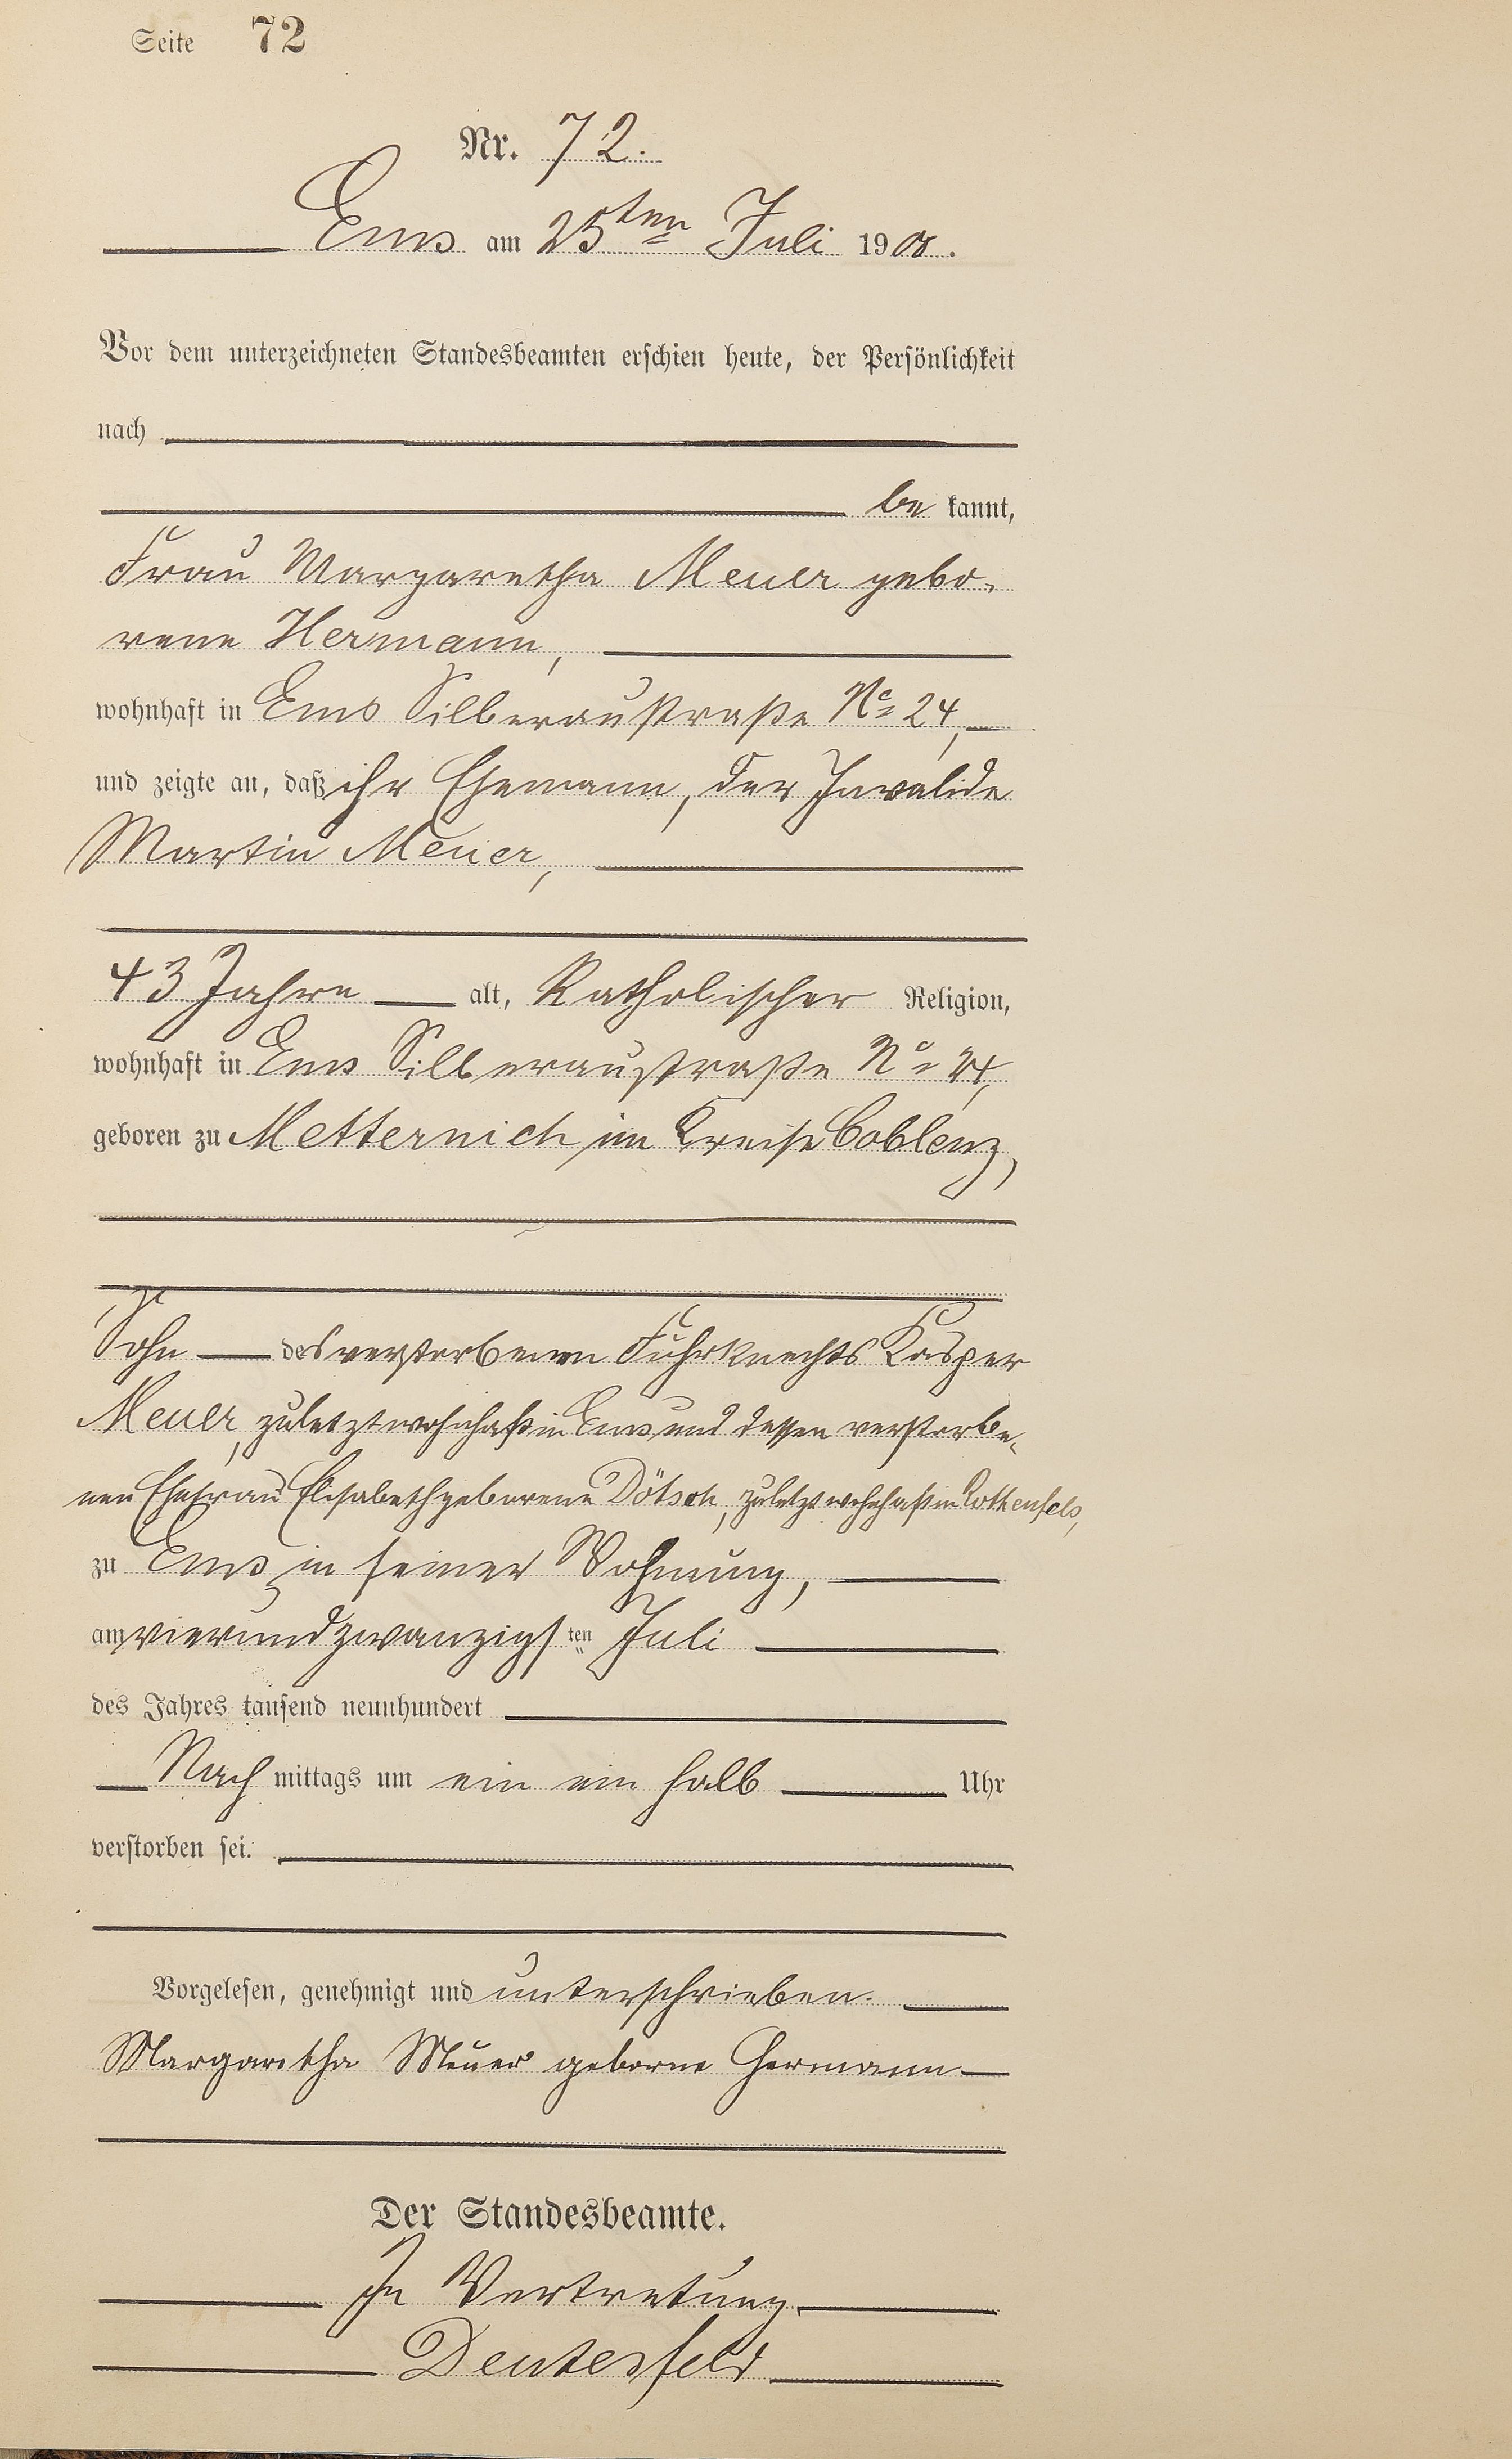 Seite 72
Nr. 72.
Ems am 25ten Juli 1900.
Vor dem unterzeichneten Standesbeamten erschien heute, der Persönlichkeit
nach
be kannt,
Frau Margaretha Meuer gebo-
rene Hermann,
wohnhaft in Ems Silberaustraße No 24,
und zeigte an, daß ihr Ehemann, der Invalide
Martin Meuer,
43 Jahre alt, Katholischer Religion,
wohnhaft in Ems Silberaustraße No 24,
geboren zu Metternich im Kreise Coblenz,
Sohn des verstorbenen Fuhrknechts Kasper
Meuer, zuletzt wohnhaft in Ems und dessen verstorbe-
nen Ehefrau Elisabeth geborene Dötsch, zuletzt wohnhaft in
zu Ems in seiner Wohnung,
am vierundzwanzigsten Juli
des Jahres tausend neunhundert
Nach mittags um ein ein halb Uhr
verstorben sei.
Vorgelesen, genehmigt und unterschrieben.
Margaretha Meuer geborne Hermann
Der Standesbeamte.
In Vertretung